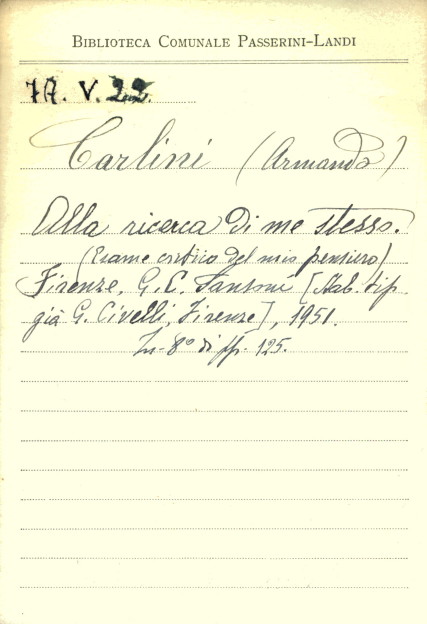 BIBLIOTECA COMUNALE PASSERINI-LANDI
7A. V. 22.
Carlini (Armando)
Alla ricerca di me stesso.
(Esame critico del mio pensiero)
Firenze, G. C. Sansoni [Stab. tip.
già G. Civelli, Firenze], 1951.
In-8° di pp. 125.